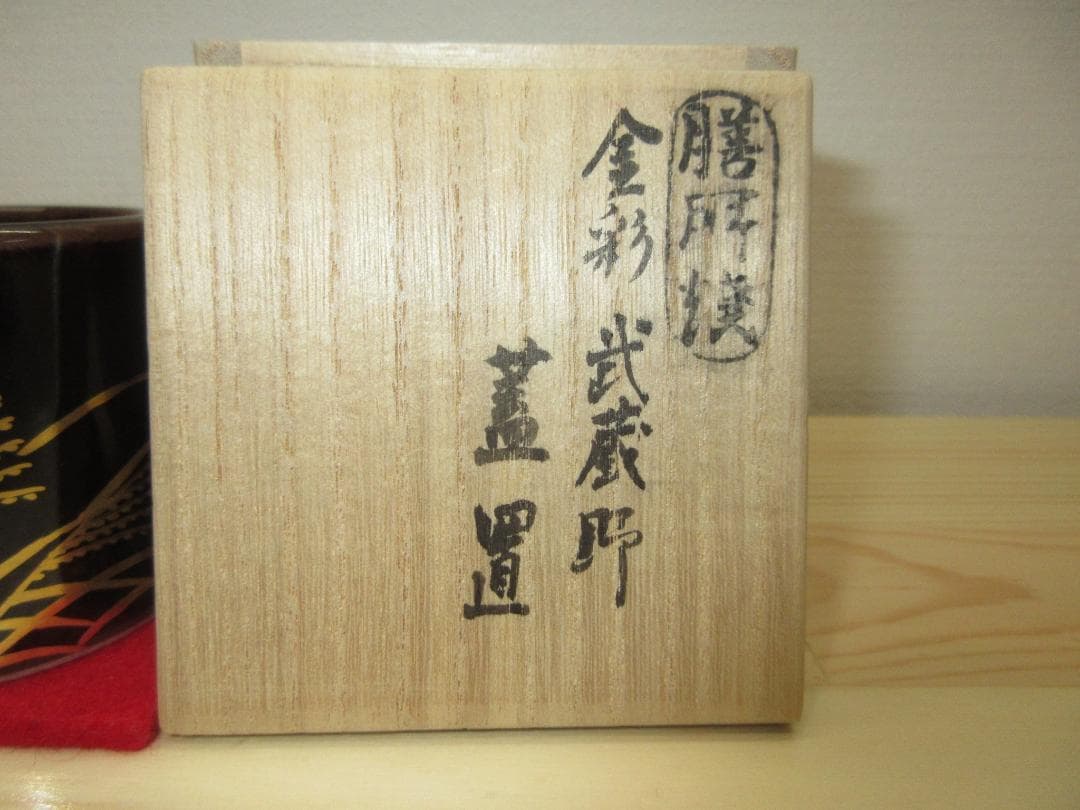 膳所焼
金彩 武蔵野
蓋置